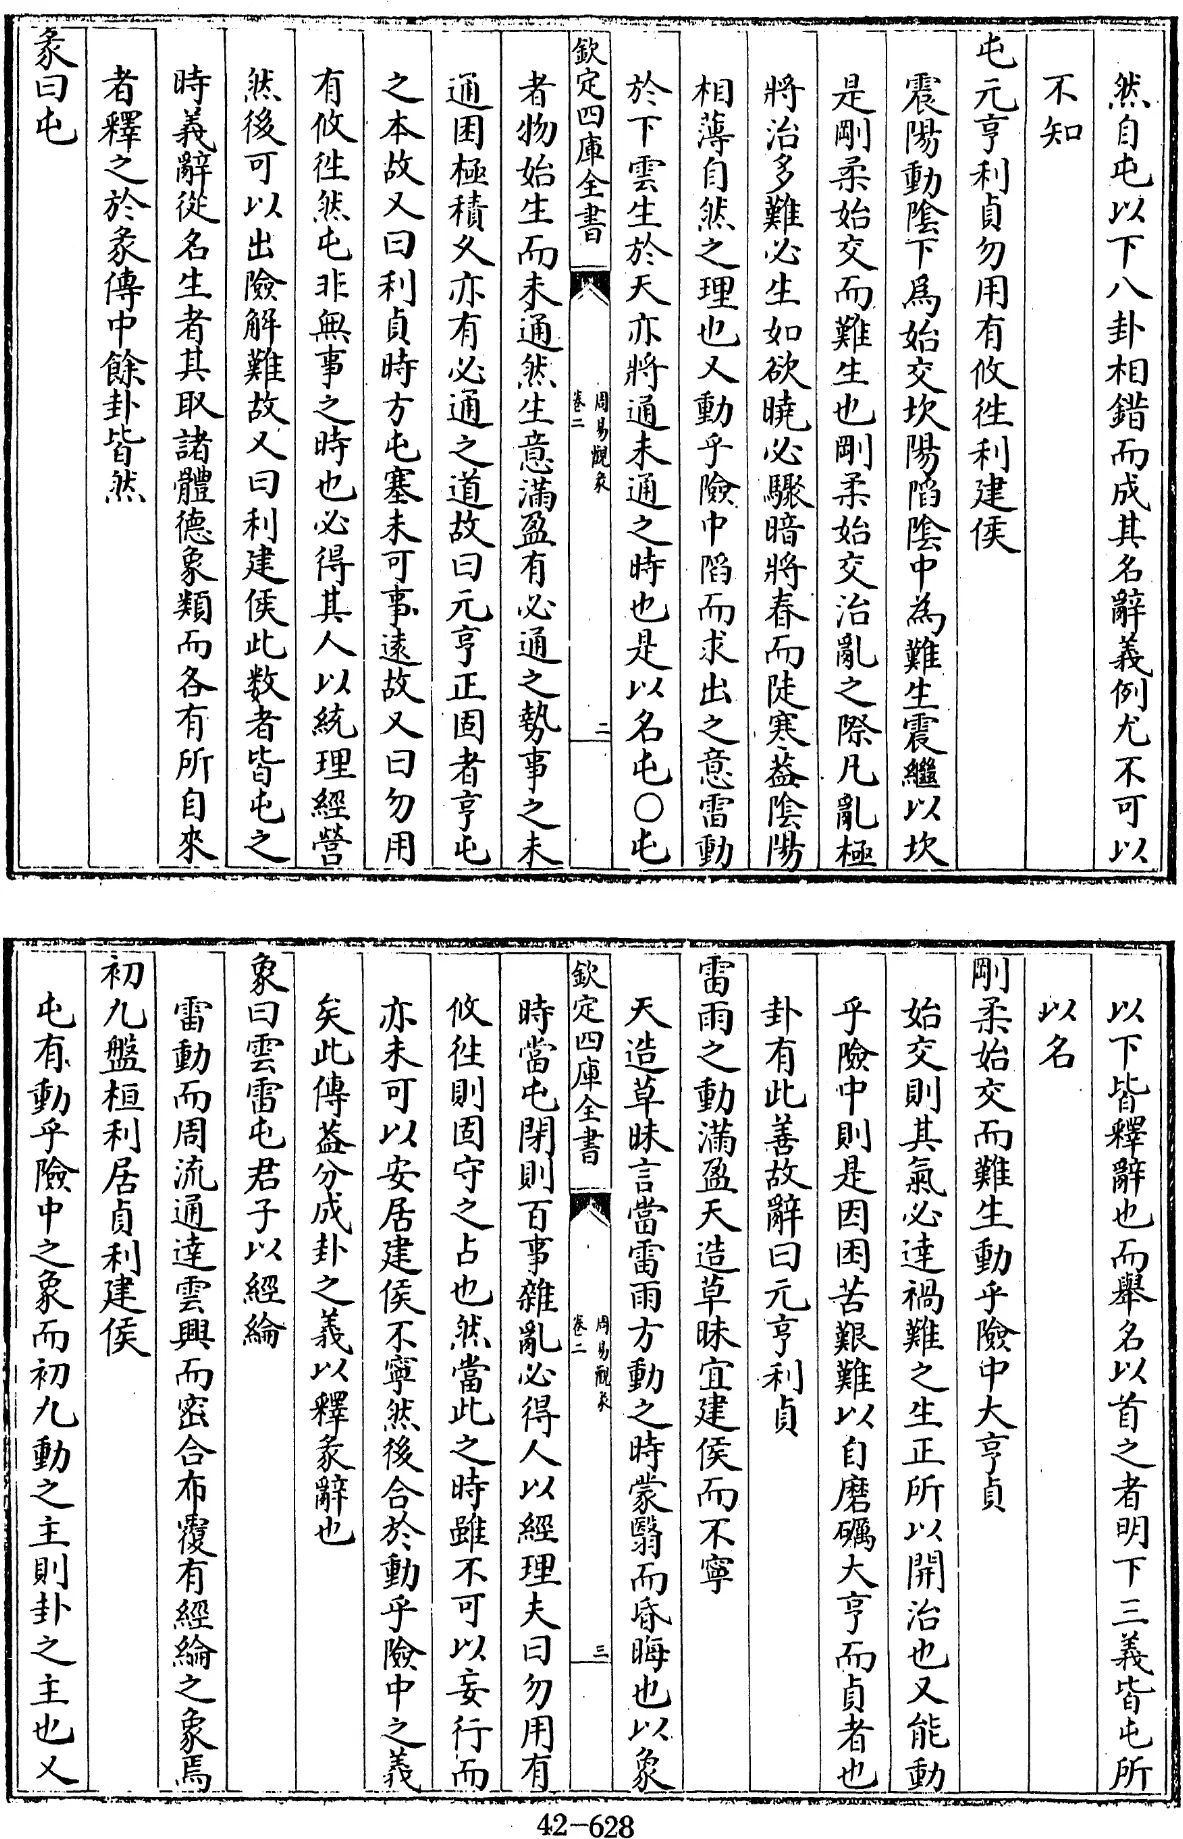 然自屯以下八卦相錯而成其名辭義例尤不可以
不知
屯元亨利貞勿用有攸往利建侯
震陽動陰下爲始交坎陽陷陰中為難生震繼以坎
是剛柔始交而難生也剛柔始交治亂之際凡亂極
將治多難必生如欲曉必驟暗將春而陡寒蓋陰陽
相薄自然之理也又動乎險中陷而求出之意雷動
於下雲生於天亦將通未通之時也是以名屯○屯
欽定四庫全書
周易觀彖
卷二
二
者物始生而未通然生意滿盈有必通之勢事之未
通困極積久亦有必通之道故曰元亨正固者亨屯
之本故又曰利貞時方屯塞未可事遠故又曰勿用
有攸往然屯非無事之時也必得其人以統理經營
然後可以出險解難故又曰利建侯此数者皆屯之
時義辭從名生者其取諸體德象類而各有所自來
者釋之於彖傳中餘卦皆然
彖曰屯
以下皆釋辭也而舉名以首之者明下三義皆屯所
以名
剛柔始交而難生動乎險中大亨貞
始交則其氣必達禍難之生正所以開治也又能動
乎險中則是因困苦艱難以自磨礪大亨而貞者也
卦有此善故辭曰元亨利貞
雷雨之動滿盈天造草昧宜建侯而不寧
天造草昧言當雷雨方動之時蒙翳而昏晦也以象
欽定四庫全書
周易觀彖
卷二
三
時當屯閉則百事雜亂必得人以經理夫曰勿用有
攸往則固守之占也然當此之時雖不可以妄行而
亦未可以安居建侯不寧然後合於動乎險中之義
矣此傳蓋分成卦之義以釋彖辭也
象曰雲雷屯君子以經綸
雷動而周流通達雲興而密合布覆有經綸之象焉
初九盤桓利居貞利建侯
屯有動乎險中之象而初九動之主則卦之主也又
42-628